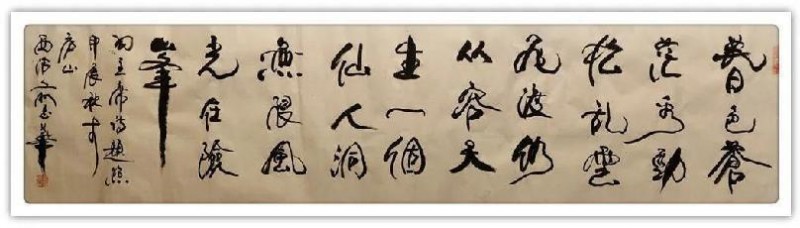 暮色蒼
茫看勁
松亂雲
飛渡仍
从容天
生一個
仙人洞
無限風
光在險
峯
主席詩題照
秋
房山